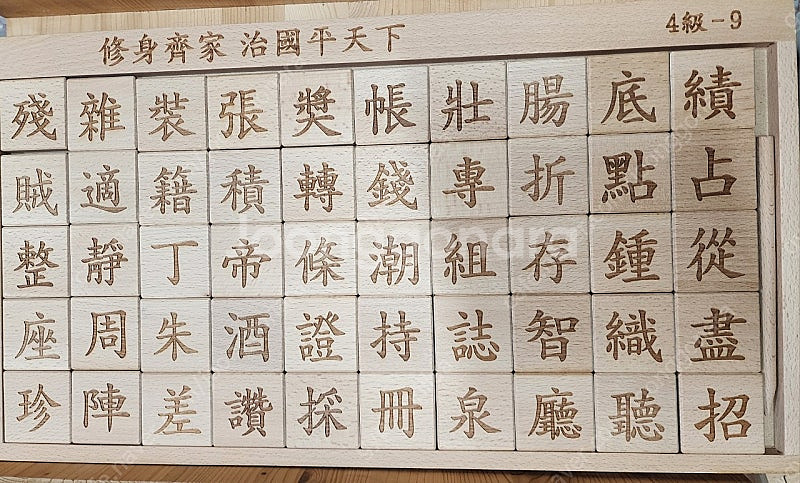 修身齊家 治國平天下
4級-9
殘 雜 裝 張 獎 帳 壯 腸 底 績
賊 適 籍 積 轉 錢 專 折 點 占
整 靜 丁 帝 條 潮 組 存 鍾 從
座 周 朱 酒 證 持 誌 智 織 盡
珍 陣 差 讚 採 冊 泉 廳 聽 招